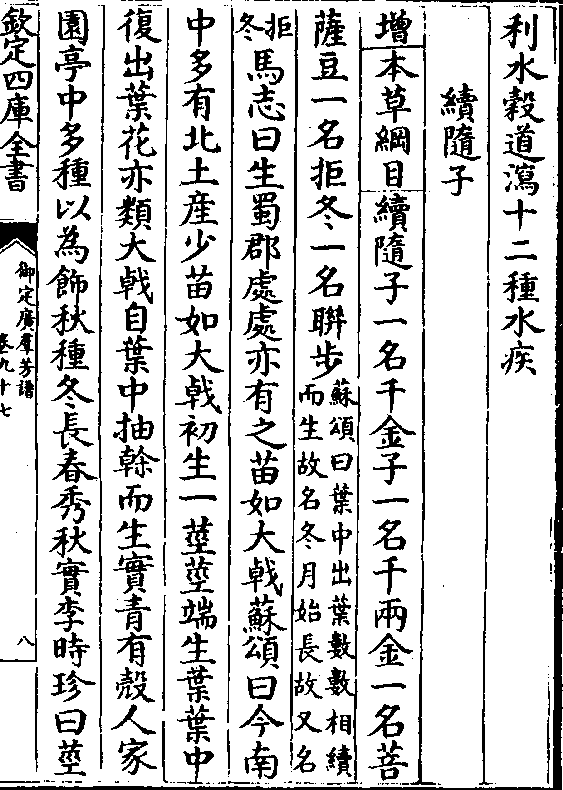 利水穀道瀉十二種水疾
續隨子
增本草綱目續隨子一名千金子一名千兩金一名菩
薩豆一名拒冬一名聯步蘇頌曰葉中出葉數數相續而生故名冬月始長故又名
拒冬馬志曰生蜀郡處處亦有之苗如大戟蘇頌曰今南
中多有北土産少苗如大戟初生一莖莖端生葉葉中
復出葉花亦類大戟自葉中抽榦而生實青有殼人家
園亭中多種以為飾秋種冬長春秀秋實李時珍曰莖
欽定四庫全書
御定廣羣芳譜
卷九十七
八